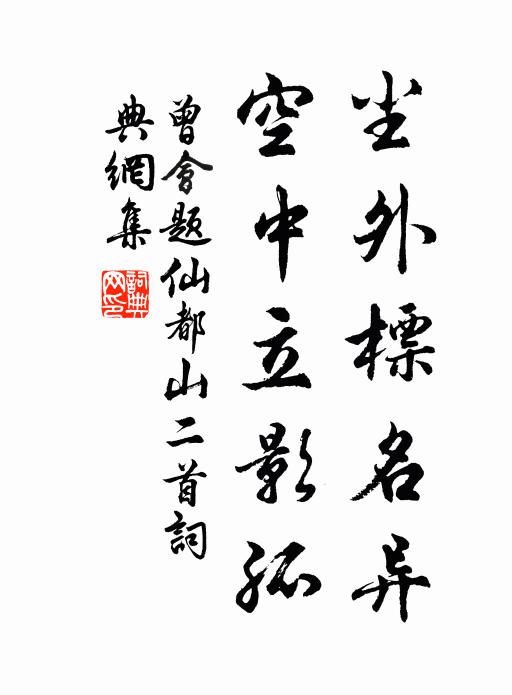 尘外標名异
空中立影孤
曾會題仙都山二首詞
典網集
詞典
网印